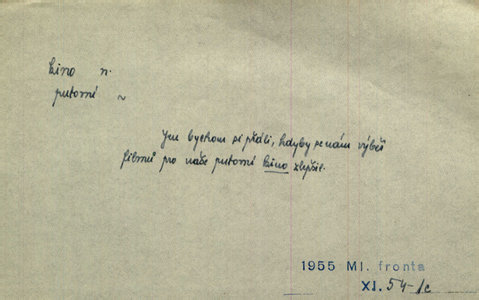 kino n.
putovní ~
Jen bychom si přáli, kdyby se nám výběr
filmů pro naše putovní kino zlepšil.
1955 Ml. fronta
XI. 54-1c